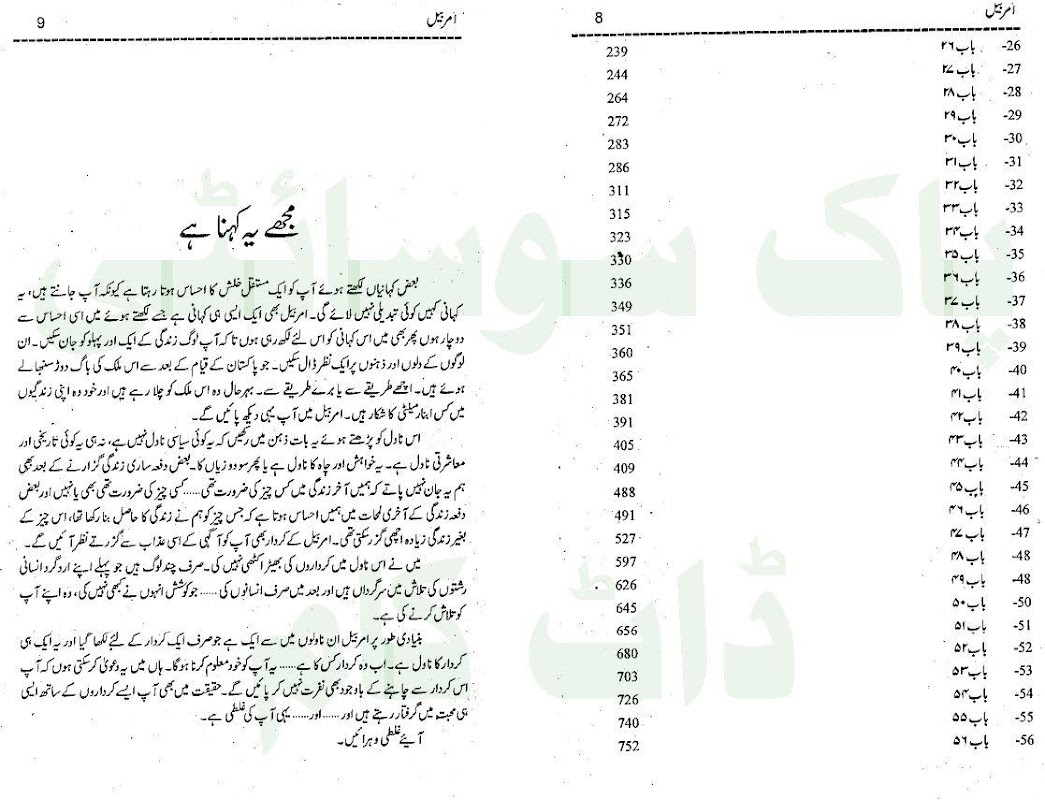 امربیل 8
26- باب ۲۶ 239
27- باب ۲۷ 244
28- باب ۲۸ 264
29- باب ۲۹ 272
30- باب ۳۰ 283
31- باب ۳۱ 286
32- باب ۳۲ 311
33- باب ۳۳ 315
34- باب ۳۴ 323
35- باب ۳۵ 330
36- باب ۳۶ 336
37- باب ۳۷ 349
38- باب ۳۸ 351
39- باب ۳۹ 360
40- باب ۴۰ 365
41- باب ۴۱ 381
42- باب ۴۲ 391
43- باب ۴۳ 405
44- باب ۴۴ 409
45- باب ۴۵ 488
46- باب ۴۶ 491
47- باب ۴۷ 527
48- باب ۴۸ 597
48- باب ۴۹ 626
50- باب ۵۰ 645
51- باب ۵۱ 656
52- باب ۵۲ 680
53- باب ۵۳ 703
54- باب ۵۴ 726
55- باب ۵۵ 740
56- باب ۵۶ 752
امربیل 9
مجھے یہ کہنا ہے
بعض کہانیاں لکھتے ہوئے آپ کو ایک مستقل خلش کا احساس ہوتا رہتا ہے کیونکہ آپ جانتے ہیں، یہ
کہانی کہیں کوئی تبدیلی نہیں لائے گی۔ امربیل بھی ایک ایسی ہی کہانی ہے جسے لکھتے ہوئے میں اسی احساس سے
دوچار ہوں پھر بھی میں اس کہانی کو اس لئے لکھ رہی ہوں تا کہ آپ لوگ زندگی کے ایک اور پہلو کو جان سکیں۔ ان
لوگوں کے دلوں اور ذہنوں پر ایک نظر ڈال سکیں۔ جو پاکستان کے قیام کے بعد سے اس ملک کی باگ دوڑ سنبھالے
ہوئے ہیں۔ اچھے طریقے سے یا برے طریقے سے۔ بہرحال وہ اس ملک کو چلا رہے ہیں اور خود وہ اپنی زندگیوں
میں کس ابنارمیلٹی کا شکار ہیں۔ امربیل میں آپ یہی دیکھ پائیں گے۔
اس ناول کو پڑھتے ہوئے یہ بات ذہن میں رکھیں کہ یہ کوئی سیاسی ناول نہیں ہے، نہ ہی یہ کوئی تاریخی اور
معاشرتی ناول ہے۔ یہ خواہش اور چاہ کا ناول ہے یا پھر سود و زیاں کا۔ بعض دفعہ ساری زندگی گزارنے کے بعد بھی
ہم یہ جان نہیں پاتے کہ ہمیں آخر زندگی میں کس چیز کی ضرورت تھی ...... کسی چیز کی ضرورت تھی بھی یا نہیں اور بعض
دفعہ زندگی کے آخری لمحات میں ہمیں احساس ہوتا ہے کہ جس چیز کو ہم نے زندگی کا حاصل بنا رکھا تھا، اس چیز کے
بغیر زندگی زیادہ اچھی گزر سکتی تھی۔ امربیل کے کردار بھی آپ کو آگہی کے اسی عذاب سے گزرتے نظر آئیں گے۔
میں نے اس ناول میں کرداروں کی بھیڑ اکٹھی نہیں کی۔ صرف چند لوگ ہیں جو پہلے اپنے اردگرد انسانی
رشتوں کی تلاش میں سرگرداں ہیں اور بعد میں صرف انسانوں کی ...... جو کوشش انہوں نے کبھی نہیں کی، وہ اپنے آپ
کو تلاش کرنے کی ہے۔
بنیادی طور پر امربیل ان ناولوں میں سے ایک ہے جو صرف ایک کردار کے لئے لکھا گیا اور یہ ایک ہی
کردار کا ناول ہے۔ اب وہ کردار کس کا ہے...... یہ آپ کو خود معلوم کرنا ہوگا۔ ہاں میں یہ دعویٰ کر سکتی ہوں کہ آپ
اس کردار سے چاہنے کے باوجود بھی نفرت نہیں کر پائیں گے۔ حقیقت میں بھی آپ ایسے کرداروں کے ساتھ ایسی
ہی محبت میں گرفتار رہتے ہیں اور ...... اور ...... یہی آپ کی غلطی ہے۔
آیئے غلطی دہرائیں۔
پاک سوسائٹی
ڈاٹ کام